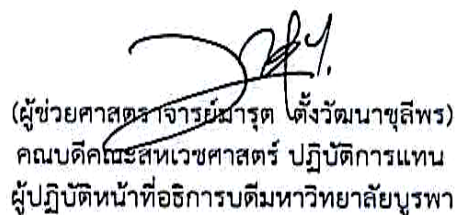 (ผู้ช่วยศาสตราจารย์มารุต ตั้งวัฒนาชุลีพร)
คณบดีคณะสหเวชศาสตร์ ปฏิบัติการแทน
ผู้ปฏิบัติหน้าที่อธิการบดีมหาวิทยาลัยบูรพา